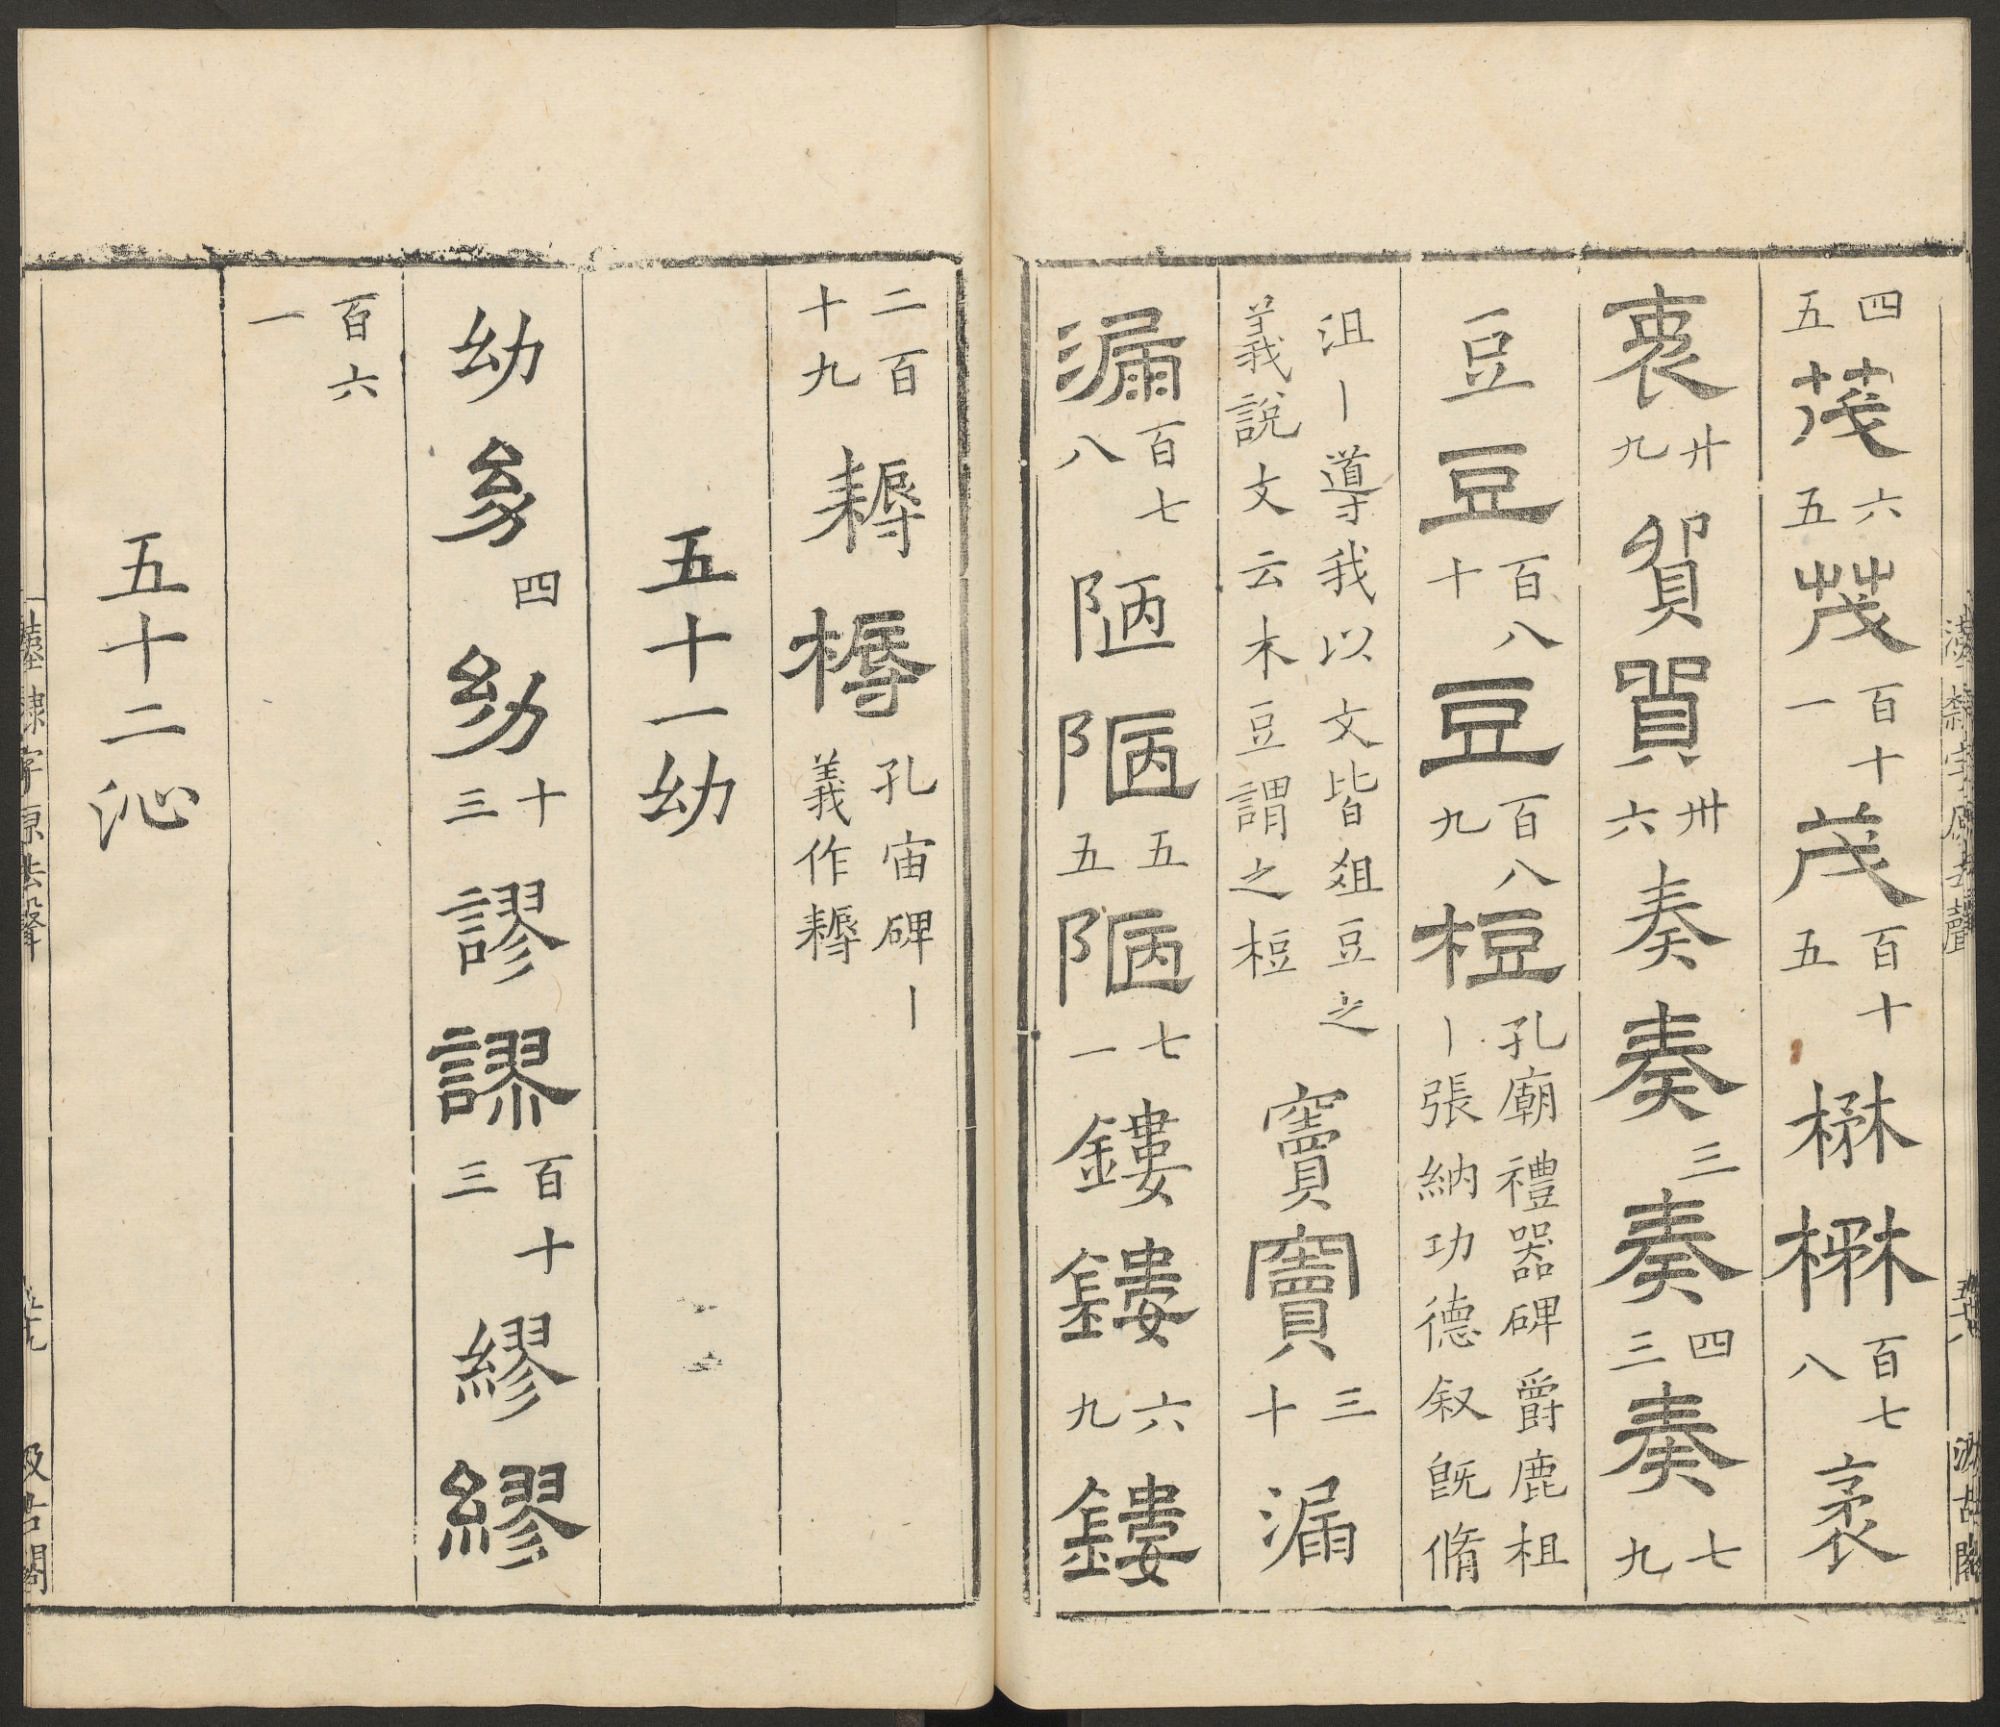 四五茂六五茂百十一茂百十五楙楙百七八袤
袤廿九貿貿卅六奏奏三奏四三奏七九
豆豆百八十豆百八九梪孔廟禮器碑爵鹿柤丨張納功德叙旣脩
沮丨導我以文皆爼豆之義說文云木豆謂之梪竇竇三十漏
漏百七八陋陋五五陋七一鏤鏤六九鏤
二百十九耨槈孔宙碑丨義作耨
五十一幼
幼㓜四㓜十三謬謬百十三繆繆
百六一
五十二沁
漢隸字原去聲
五十八
汲古閣
漢隸字原去聲
五十九
汲古閣